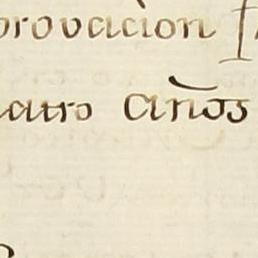 provacion
atro años